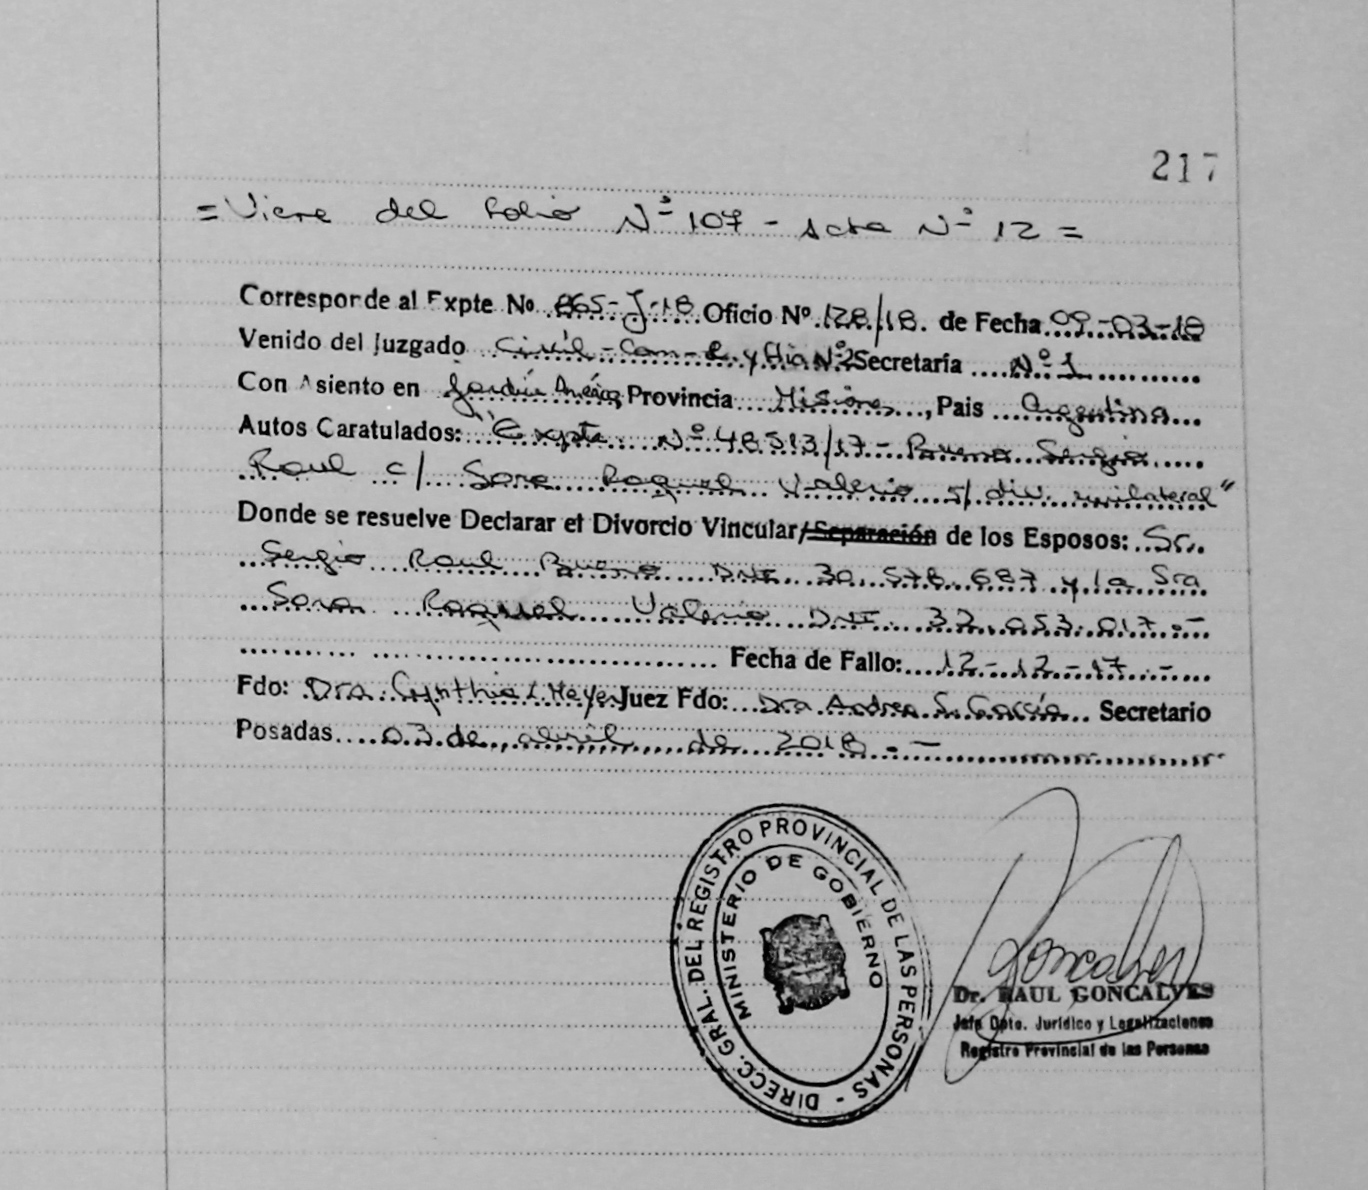 217
= Viene del folio Nº 107 - Acta Nº 12 =
Corresponde al Expte No. 865-J-18 Oficio Nº 128/18. de Fecha 09-03-18
Venido del Juzgado Civil-Com-L. y Flia Nº2 Secretaría Nº 1
Con Asiento en Jardín América, Provincia Misiones, País Argentina
Autos Caratulados: "Expte Nº 48513/17 - Bueno Sergio
Raul c/ Sara Raquel Valerio s/ div. unilateral"
Donde se resuelve Declarar el Divorcio Vincular/Separación de los Esposos: Sr.
Sergio Raul Bueno DNI 30.578.687 y la Sra
Sara Raquel Valerio DNI. 32.053.017.-
Fecha de Fallo: 12-12-17.-
Fdo: Dra. Cynthia L. Meyer Juez Fdo: Dra. Andrea S. García Secretario
Posadas 03 de abril de 2018.-
DIRECC. GRAL. DEL REGISTRO PROVINCIAL DE LAS PERSONAS -
MINISTERIO DE GOBIERNO
Goncalves
Dr. RAUL GONCALVES
Jefe Dpto. Jurídico y Legalizaciones
Registro Provincial de las Personas